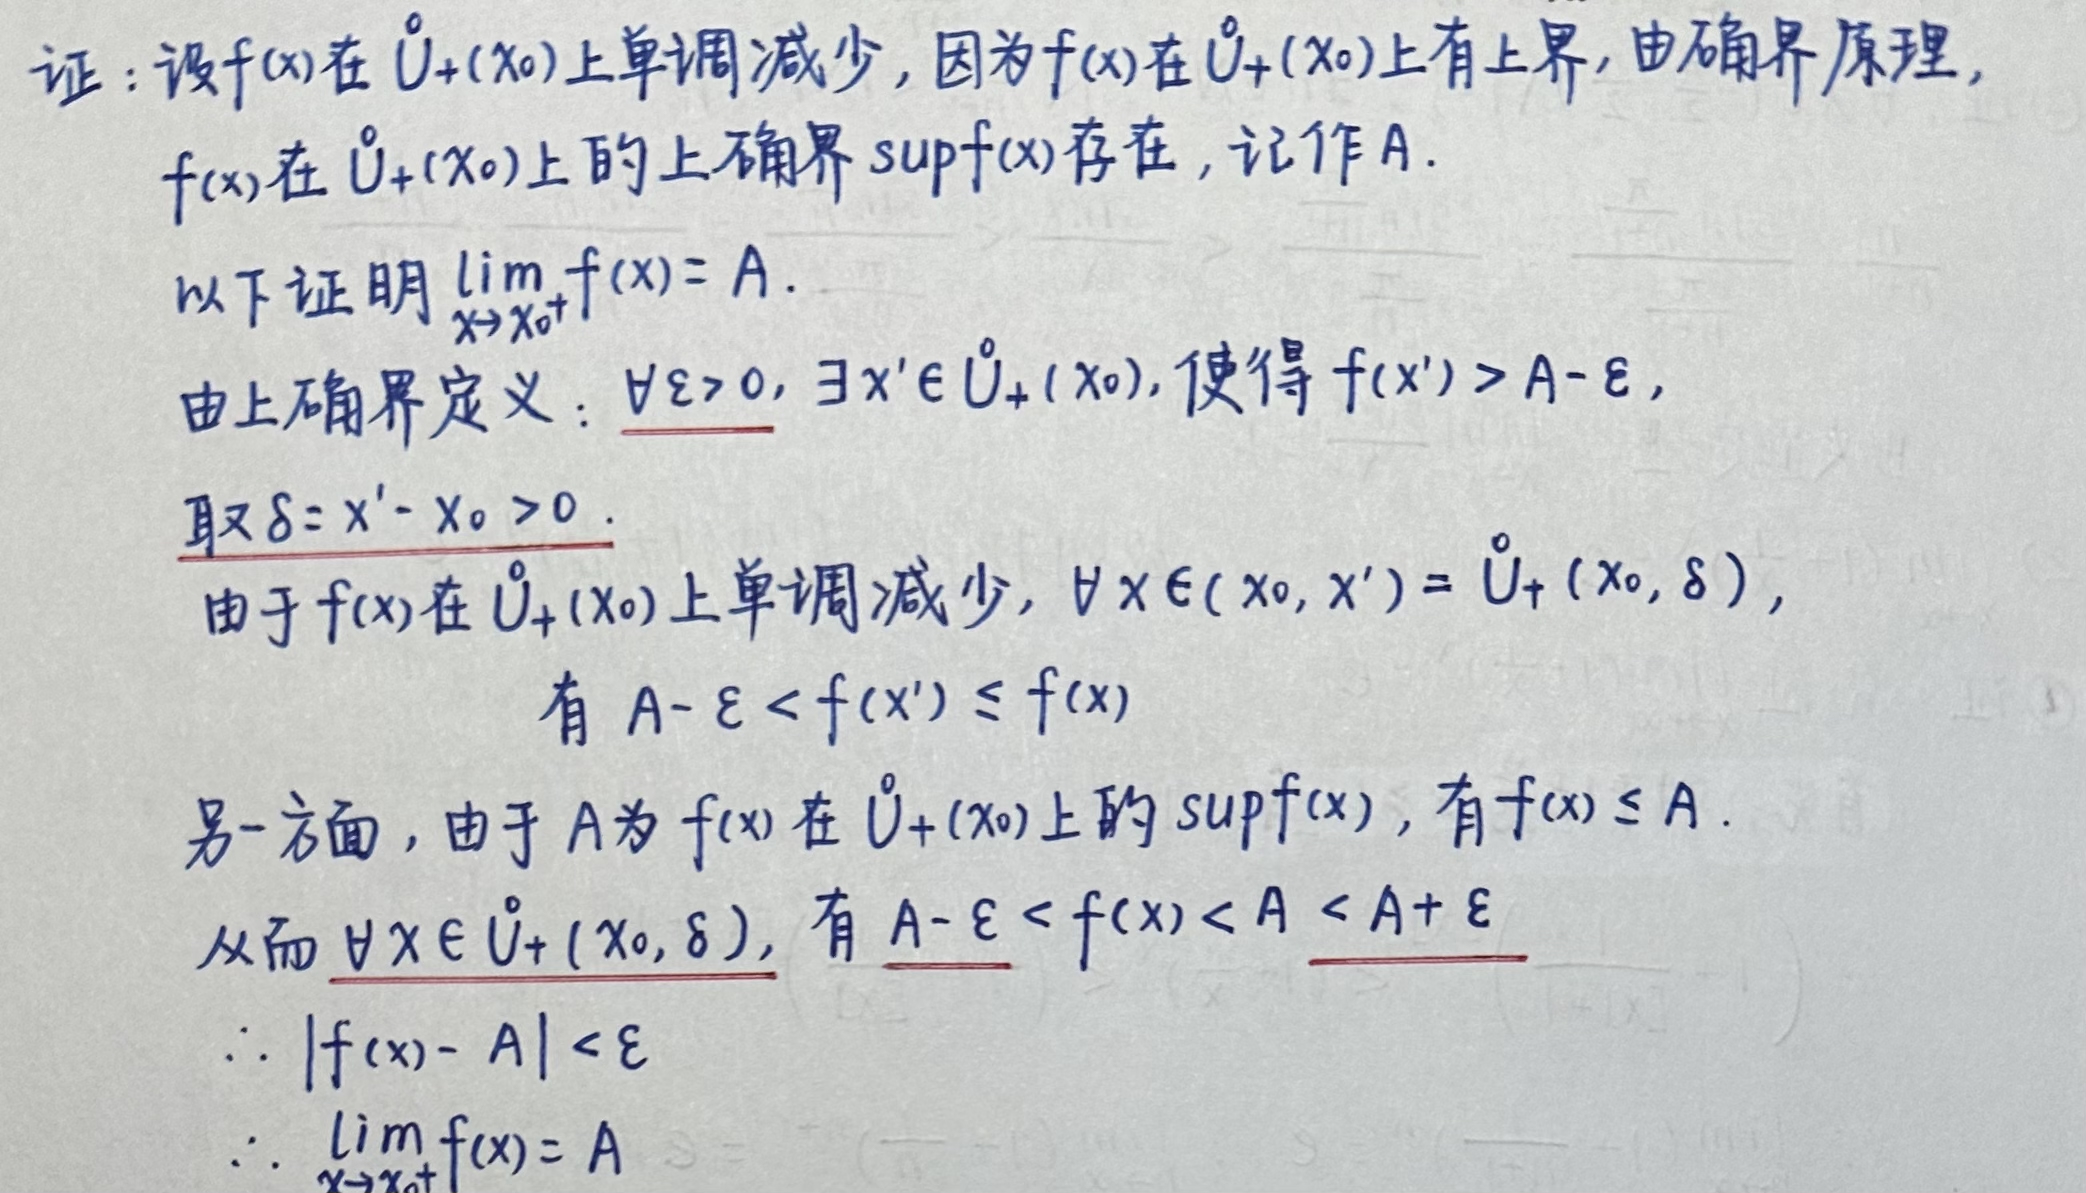 证：设f(x)在 Ů₊(x₀)上单调减少，因为f(x)在Ů₊(x₀)上有上界，由确界原理，
f(x)在 Ů₊(x₀)上的上确界 supf(x)存在，记作A.
以下证明 lim f(x) = A.
x→x₀⁺
由上确界定义：∀ε>0，∃x'∈Ů₊(x₀)，使得 f(x') > A-ε，
取δ=x'-x₀>0.
由于f(x)在Ů₊(x₀)上单调减少，∀x∈(x₀, x') = Ů₊(x₀, δ)，
有 A-ε < f(x') ≤ f(x)
另一方面，由于A为 f(x) 在 Ů₊(x₀)上的 supf(x)，有f(x) ≤ A.
从而 ∀x∈Ů₊(x₀, δ)，有 A-ε < f(x) < A < A+ε
∴ |f(x)-A| < ε
∴ lim f(x) = A
x→x₀⁺